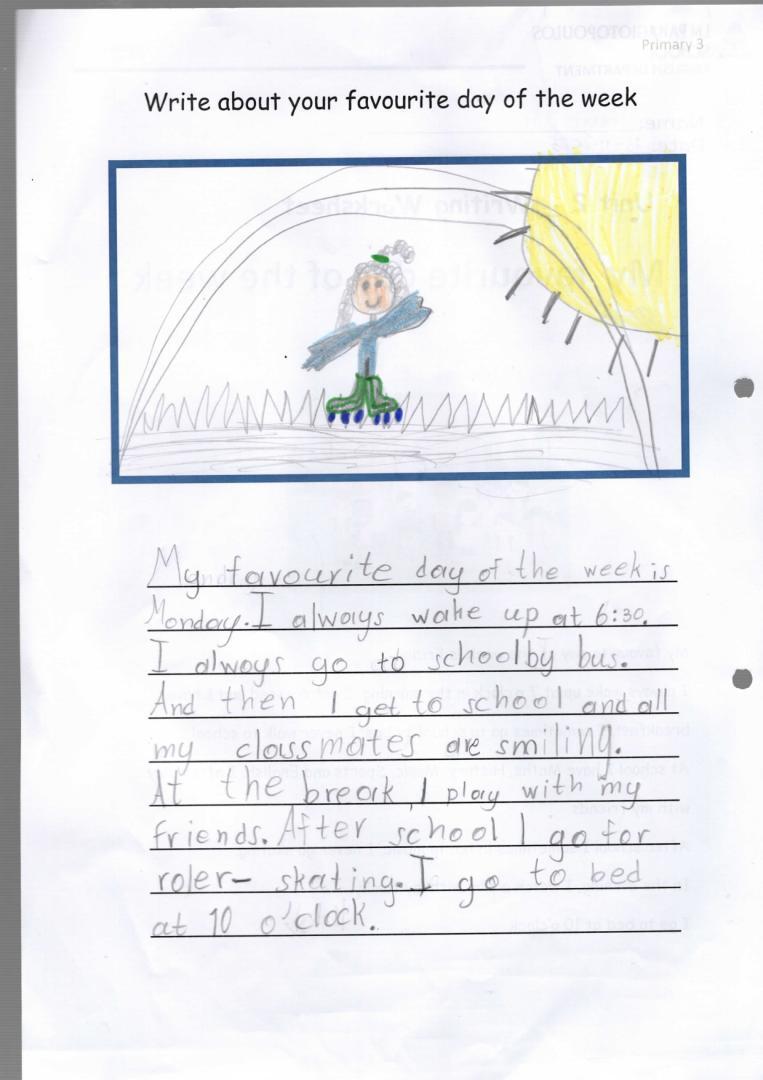 Primary 3
Write about your favourite day of the week
My favourite day of the week is
Monday. I always wake up at 6:30.
I always go to school by bus.
And then I get to school and all
my classmates are smiling.
At the break, I play with my
friends. After school I go for
roler- skating. I go to bed
at 10 o'clock.